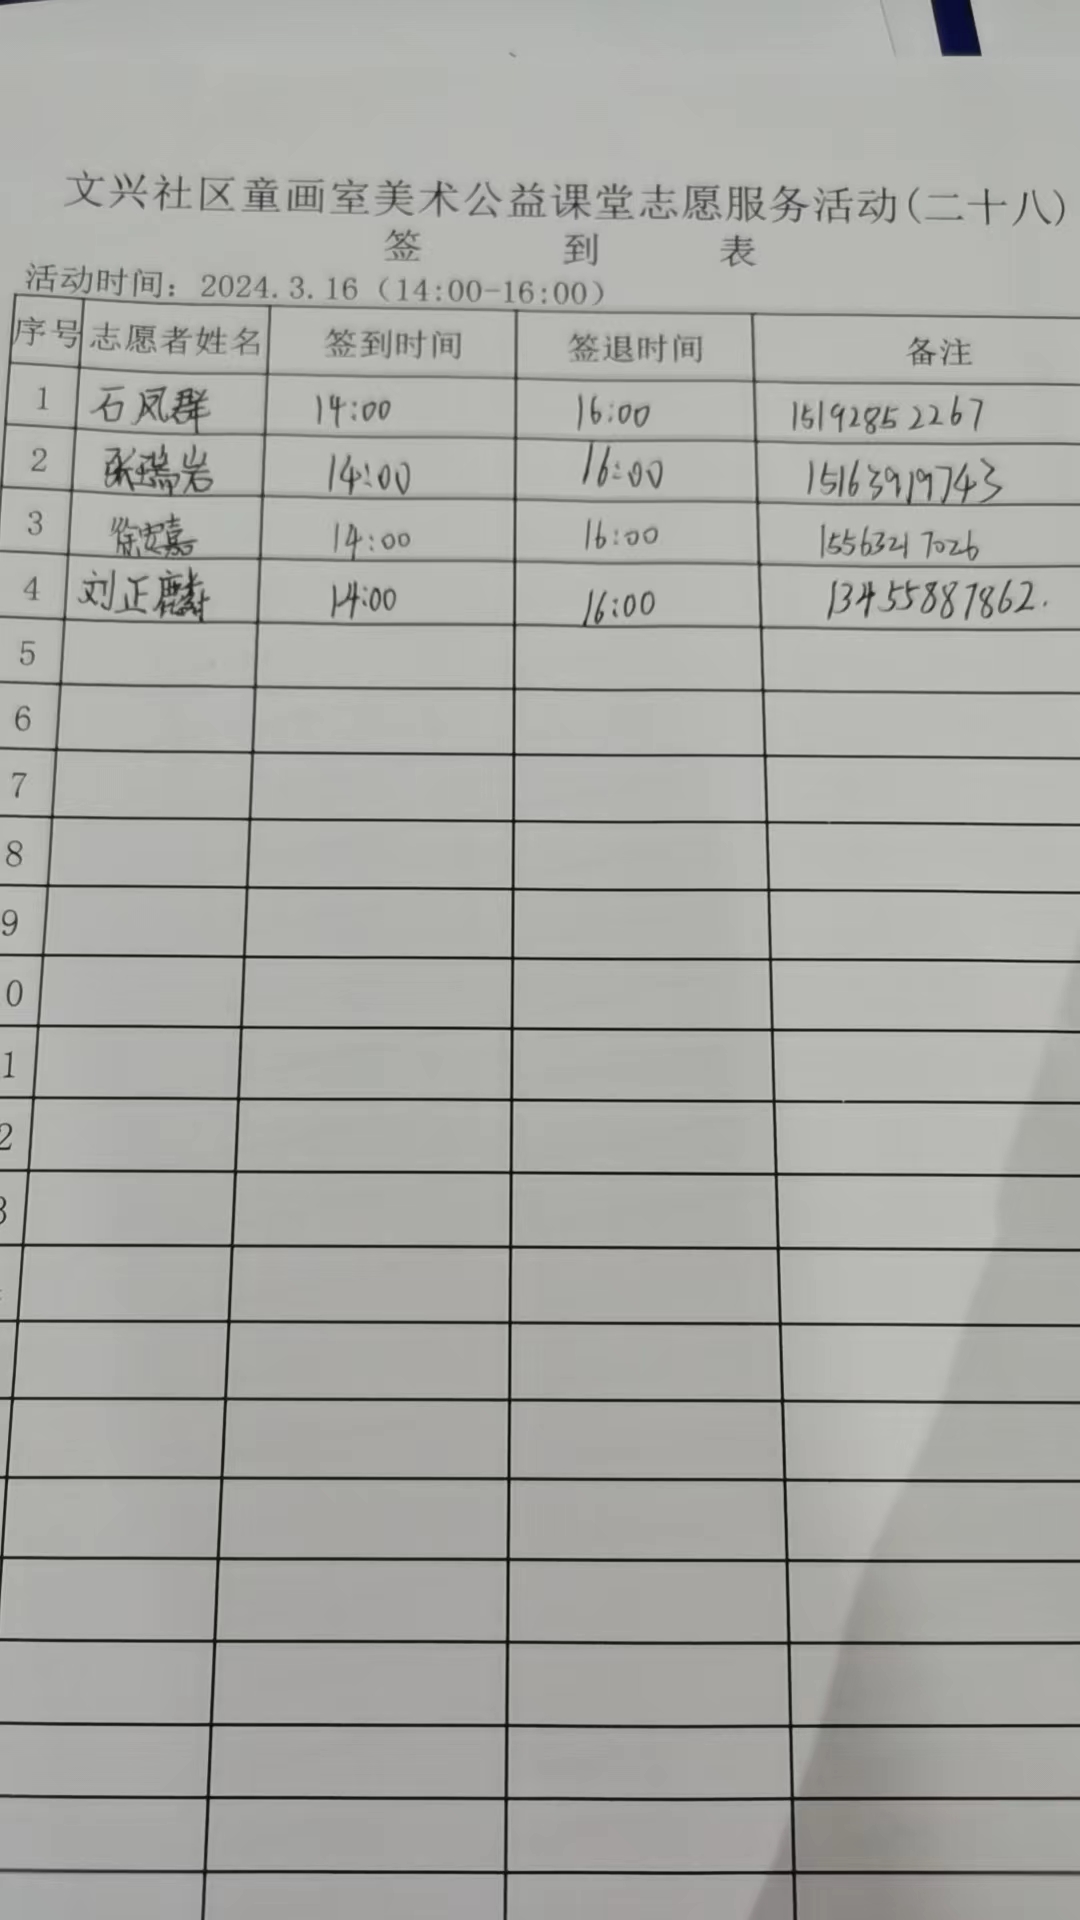 文兴社区童画室美术公益课堂志愿服务活动(二十八)
签 到 表
活动时间：2024.3.16（14:00-16:00）
序号 志愿者姓名 签到时间 签退时间 备注
1 石凤群 14:00 16:00 15192852267
2 张瑞岩 14:00 16:00 15163919743
3 徐安嘉 14:00 16:00 15563217026
4 刘正麟 14:00 16:00 13455887862.
5
6
7
8
9
0
1
2
3